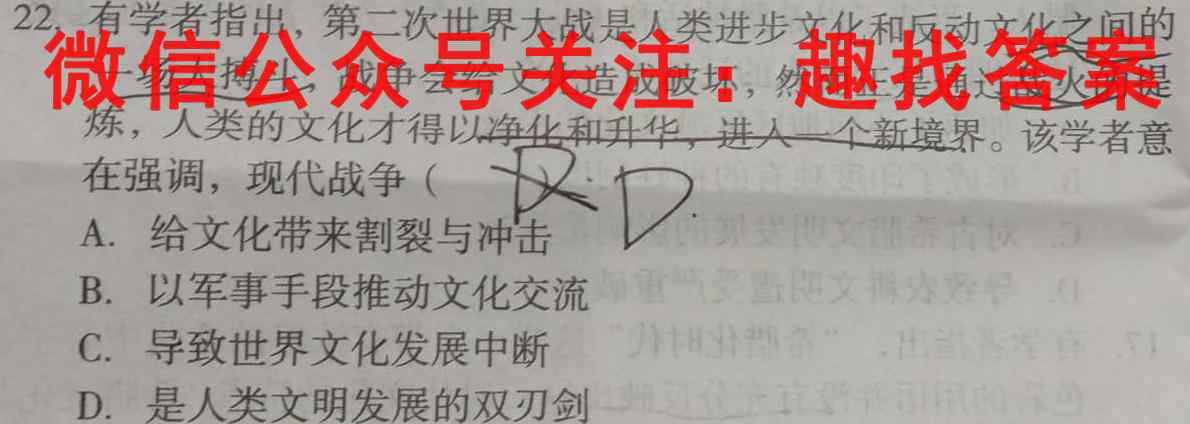 22. 有学者指出，第二次世界大战是人类进步文化和反动文化之间的
一场大搏斗，战争会给文化造成破坏，然而正是通过战火的提
微信公众号关注：趣找答案
炼，人类的文化才得以净化和升华，进入一个新境界。该学者意
在强调，现代战争（
D.
A. 给文化带来割裂与冲击
B. 以军事手段推动文化交流
C. 导致世界文化发展中断
D. 是人类文明发展的双刃剑